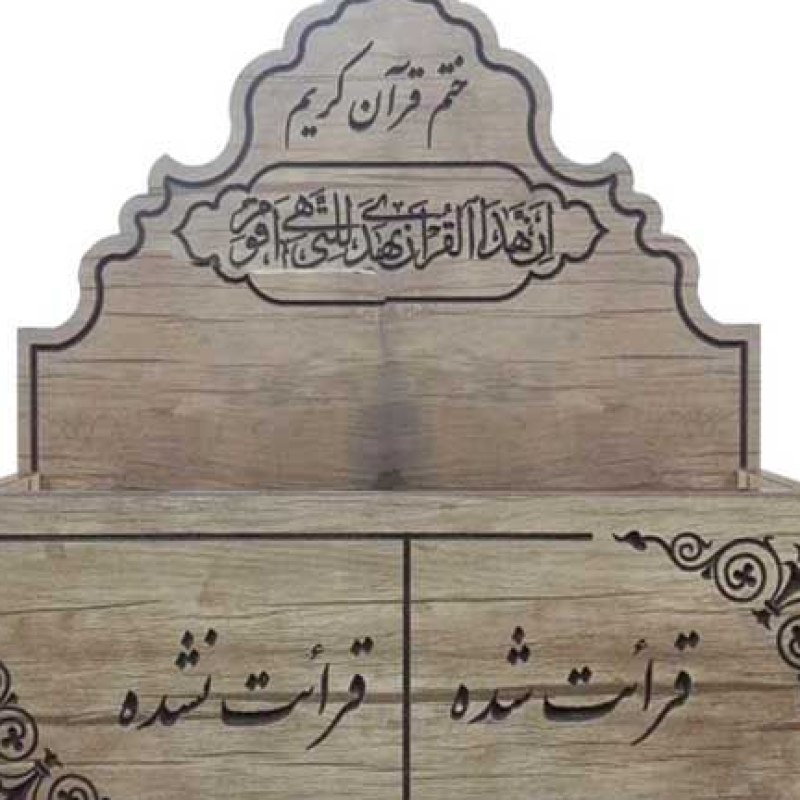 ختم قرآن کریم
اِنَّ هٰذَا القُرآنَ یَهدی لِلَّتی هِیَ اَقوَم
قرأت شده
قرائت نشده